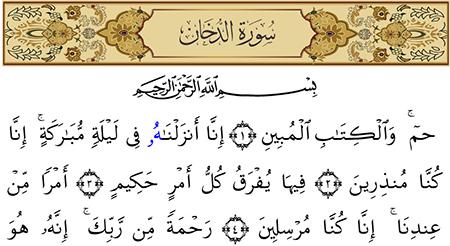 سُورَةُ الدُّخَانِ
بِسْمِ اللَّهِ الرَّحْمَٰنِ الرَّحِيمِ
حمٓ ۚ وَالْكِتَٰبِ الْمُبِينِ ﴿١﴾ إِنَّا أَنزَلْنَٰهُۥ فِى لَيْلَةٍ مُّبَٰرَكَةٍ ۚ إِنَّا
كُنَّا مُنذِرِينَ ﴿٢﴾ فِيهَا يُفْرَقُ كُلُّ أَمْرٍ حَكِيمٍ ﴿٣﴾ أَمْرًا مِّنْ
عِندِنَا ۚ إِنَّا كُنَّا مُرْسِلِينَ ﴿٤﴾ رَحْمَةً مِّن رَّبِّكَ ۚ إِنَّهُۥ هُوَ